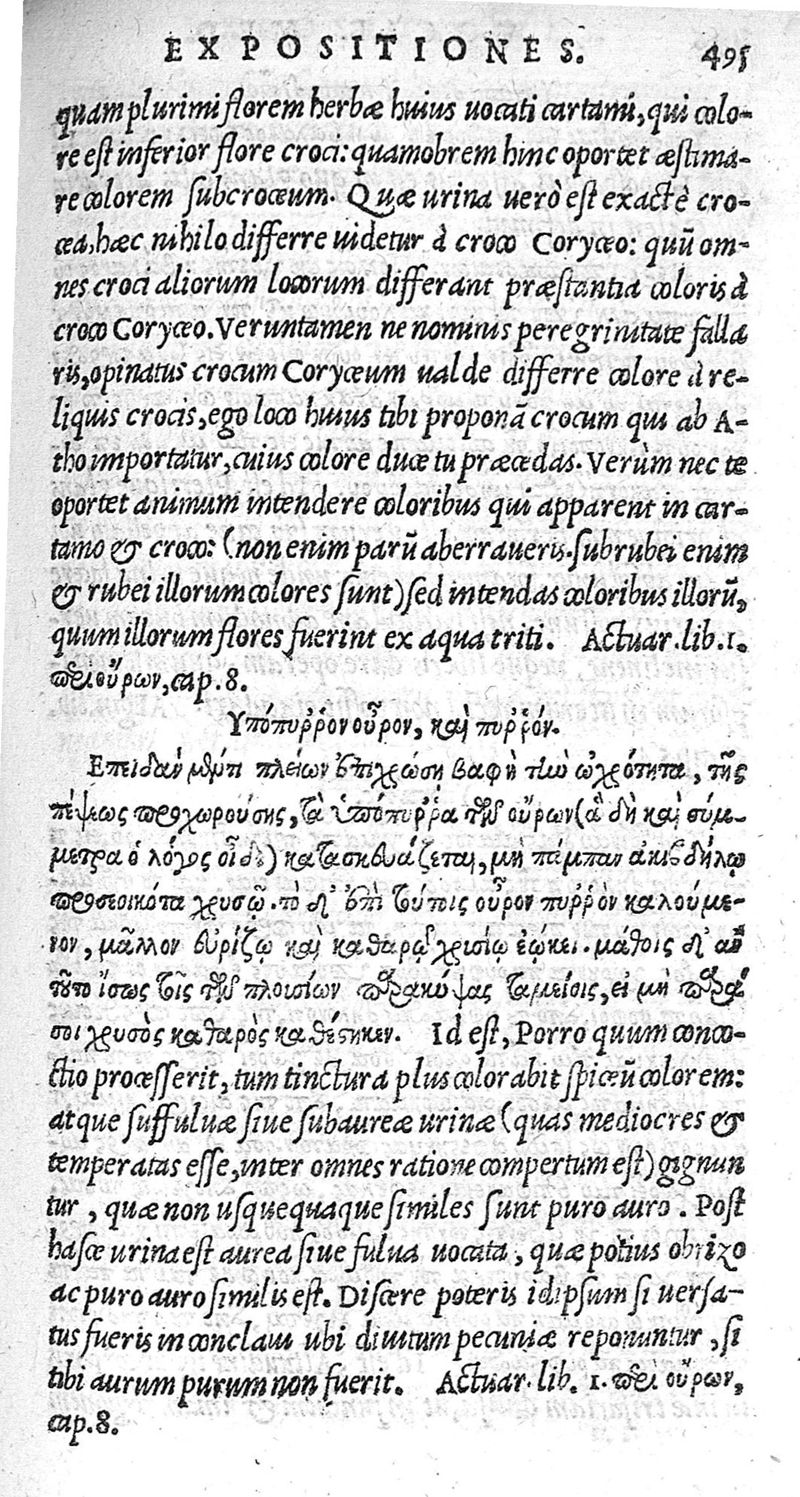 EXPOSITIONES. 495
quam plurimi florem herbæ huius uocati cartami, qui colo-
re est inferior flore croci: quamobrem hinc oportet æstima-
re colorem subcroceum. Quæ urina uerò est exactè cro-
cea, hæc nihilo differre uidetur à croco Corycæo: quũ om-
nes croci aliorum locorum differant præstantia coloris à
croco Corycæo. Veruntamen ne nominis peregrinitate falla
ris, opinatus crocum Corycæum ualde differre colore à re-
liquis crocis, ego loco huius tibi proponã crocum qui ab A-
tho importatur, cuius colore duce tu præcedas. Verùm nec te
oportet animum intendere coloribus qui apparent in car-
tamo & croco: (non enim parũ aberraueris. subrubei enim
& rubei illorum colores sunt) sed intendas coloribus illorũ,
quum illorum flores fuerint ex aqua triti. Actuar. lib. 1.
περὶ οὔρων, cap. 8.
Υπόπυῤῥον οὖρον, καὶ πυῤῥόν.
Επειδὰν μέντοι πλείων ἐπιχρώσῃ βαφὴ τὴν ὠχρότητα, τῆς
πέψεως προχωρούσης, τὰ ὑπόπυῤῥα τῶν οὔρων (ἃ δὴ καὶ σύμ-
μετρα ὁ λόγος οἶδε) κατασκευάζεται, μὴ πάμπαν ἀκιβδήλῳ
προσεοικότα χρυσῷ. τὸ δ' ἐπὶ τούτοις οὖρον πυῤῥὸν καλούμε-
νον, μᾶλλον εὐρίζῳ καὶ καθαρῷ χρυσίῳ ἐῴκει. μάθοις δ' ἂν
τοῦτο ἴσως τοῖς τῶν πλουσίων παρακύψας ταμείοις, εἰ μὴ παρά
σοι χρυσὸς καθαρὸς καθέστηκεν. Id est, Porro quum conco-
ctio processerit, tum tinctura plus colorabit spiceũ colorem:
atque suffuluæ siue subaureæ urinæ (quas mediocres &
temperatas esse, inter omnes ratione compertum est) gignun
tur, quæ non usquequaque similes sunt puro auro. Post
hasce urina est aurea siue fulua uocata, quæ potius obrizo
ac puro auro similis est. Discere poteris id ipsum si uersa-
tus fueris in conclaui ubi diuitum pecuniæ reponuntur, si
tibi aurum purum non fuerit. Actuar. lib. 1. περὶ οὔρων,
cap. 8.